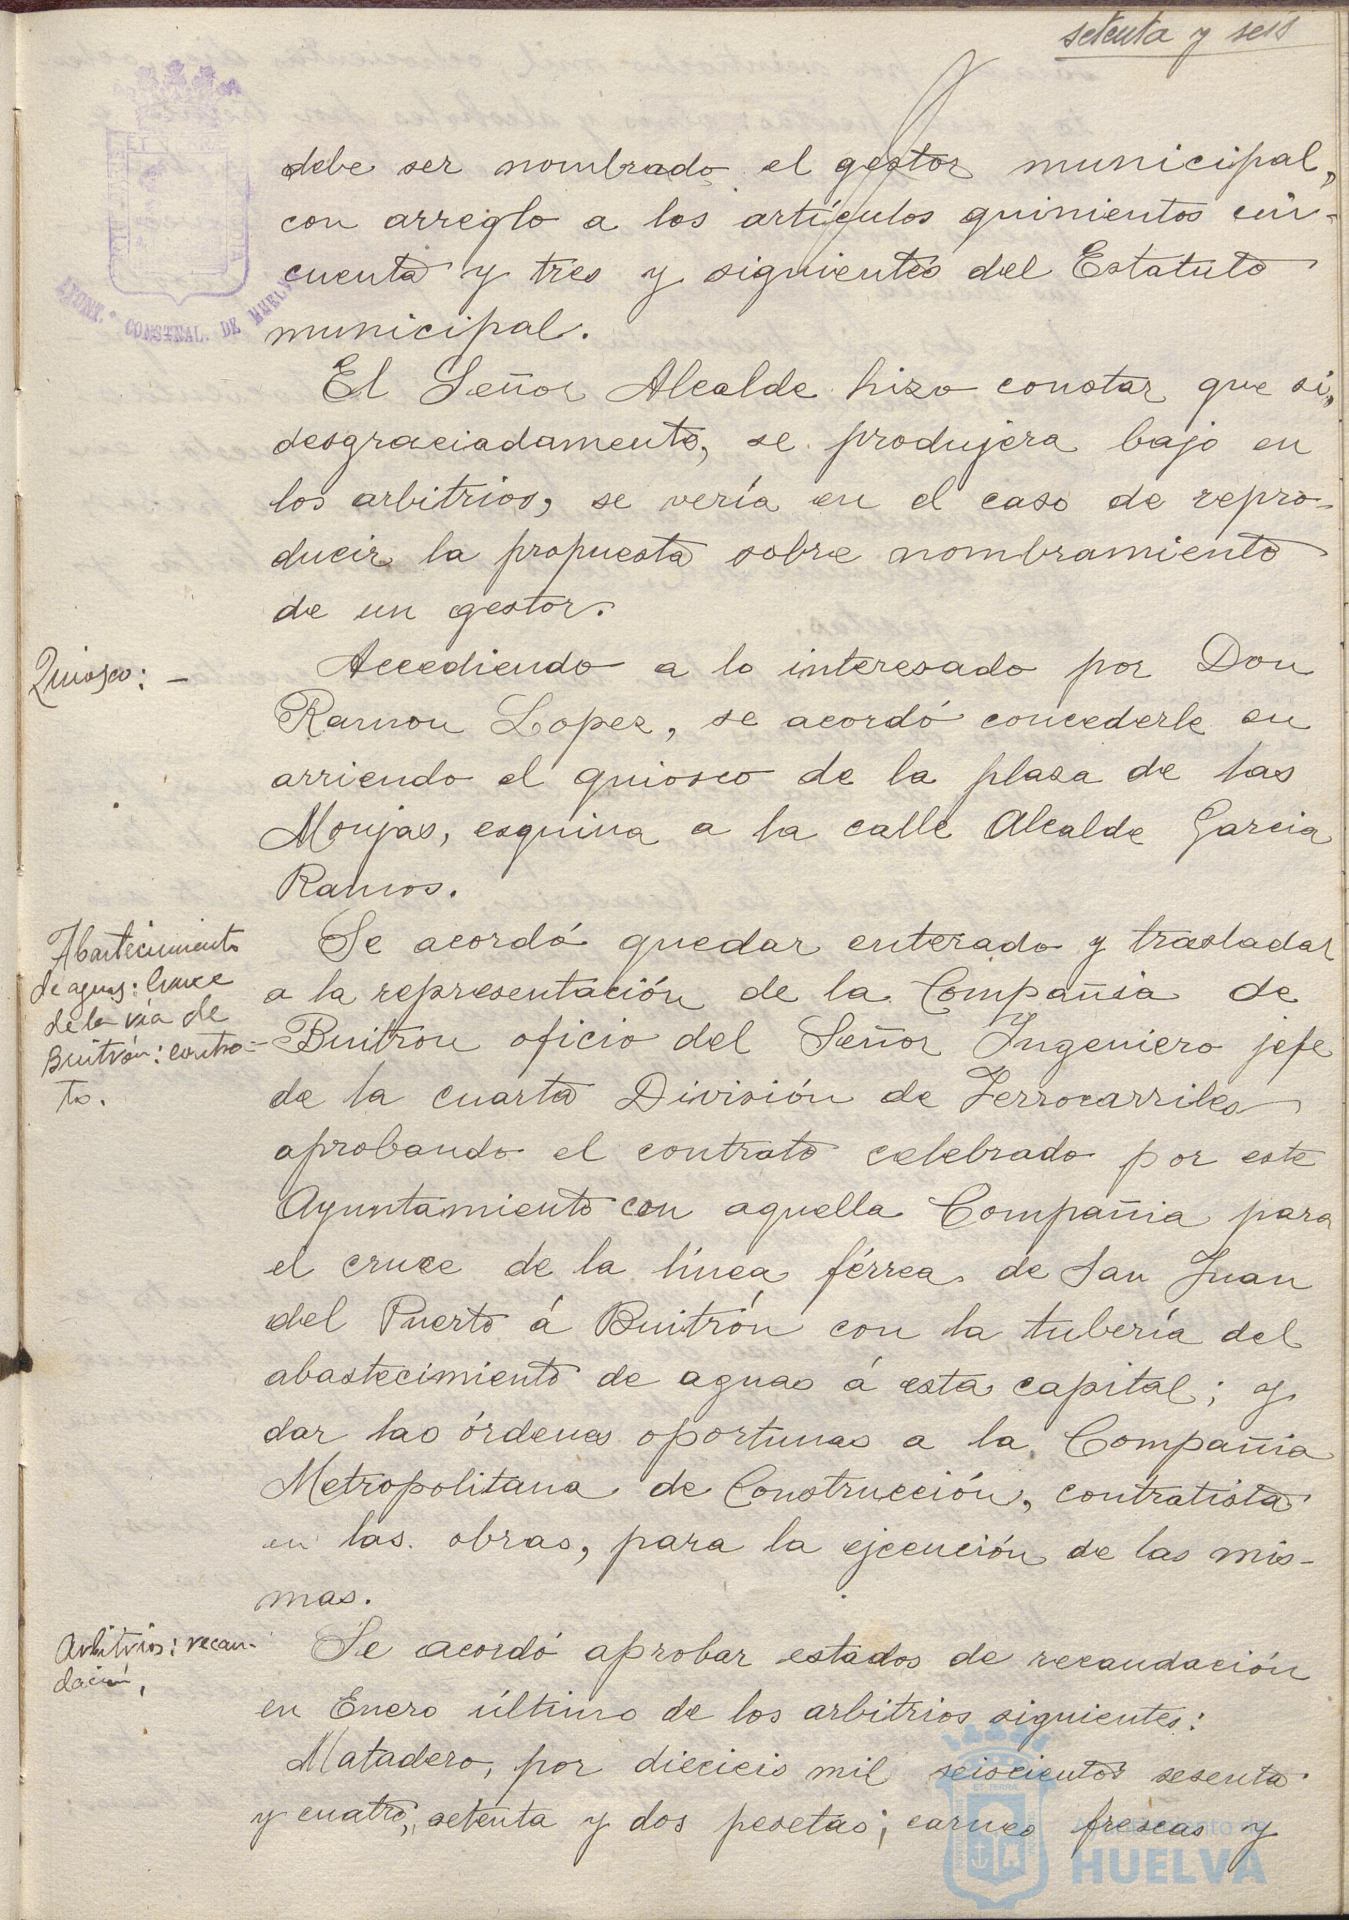 setenta y seis
debe ser nombrado el gestor municipal,
con arreglo a los artículos quinientos cin-
cuenta y tres y siguientes del Estatuto
municipal.
AYUNT. CONSTNAL. DE HUELVA
El Señor Alcalde hizo constar que si,
desgraciadamente, se produjera baja en
los arbitrios, se vería en el caso de repro-
ducir la propuesta sobre nombramiento
de un gestor.
Quiosco: -
Accediendo a lo interesado por Don
Ramon Lopez, se acordó concederle en
arriendo el quiosco de la plaza de las
Monjas, esquina a la calle Alcalde Garcia
Ramos.
Abastecimiento
de aguas: Cruce
de la vía de
Buitrón: contra-
to.
Se acordó quedar enterado y trasladar
a la representación de la Compañia de
Buitron oficio del Señor Ingeniero jefe
de la cuarta División de Ferrocarriles
aprobando el contrato celebrado por este
Ayuntamiento con aquella Compañia para
el cruce de la línea férrea de San Juan
del Puerto á Buitrón con la tubería del
abastecimiento de aguas á esta capital; y
dar las órdenes oportunas a la Compañia
Metropolitana de Construcción, contratista
en las obras, para la ejecución de las mis-
mas.
Arbitrios: recau-
dación,
Se acordó aprobar estados de recaudación
en Enero último de los arbitrios siguientes:
Matadero, por diecicis mil seiscientos sesenta
y cuatro, setenta y dos pesetas; carnes frescas y
Ayuntamiento de
HUELVA